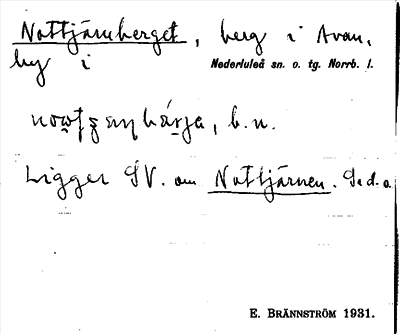 Nottjärnberget, berg i Avan,
by i Nederluleå sn. o. tg. Norrb. l.
b. n.
Ligger SV. om Nottjärnen. Se d. o.
E. BRÄNNSTRÖM 1931.